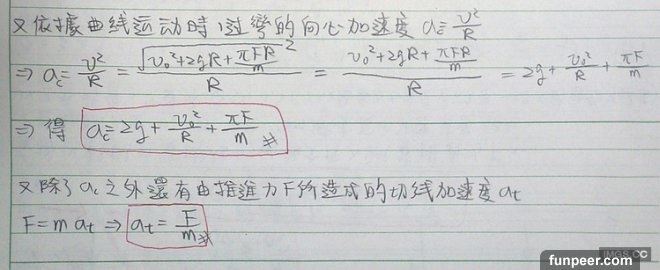 又依據曲线运动時,过彎的向心加速度 a_c = v²/R
⇒ a_c = v²/R = √(v₀²+2gR+πFR/m)²/R = (v₀²+2gR+πFR/m)/R = 2g + v₀²/R + πF/m
⇒ 得 a_c = 2g + v₀²/R + πF/m #
又除了 a_c 之外還有由推進力F所造成的切线加速度 a_t
F = m a_t ⇒ a_t = F/m #
IMGS.CC
funpeer.com